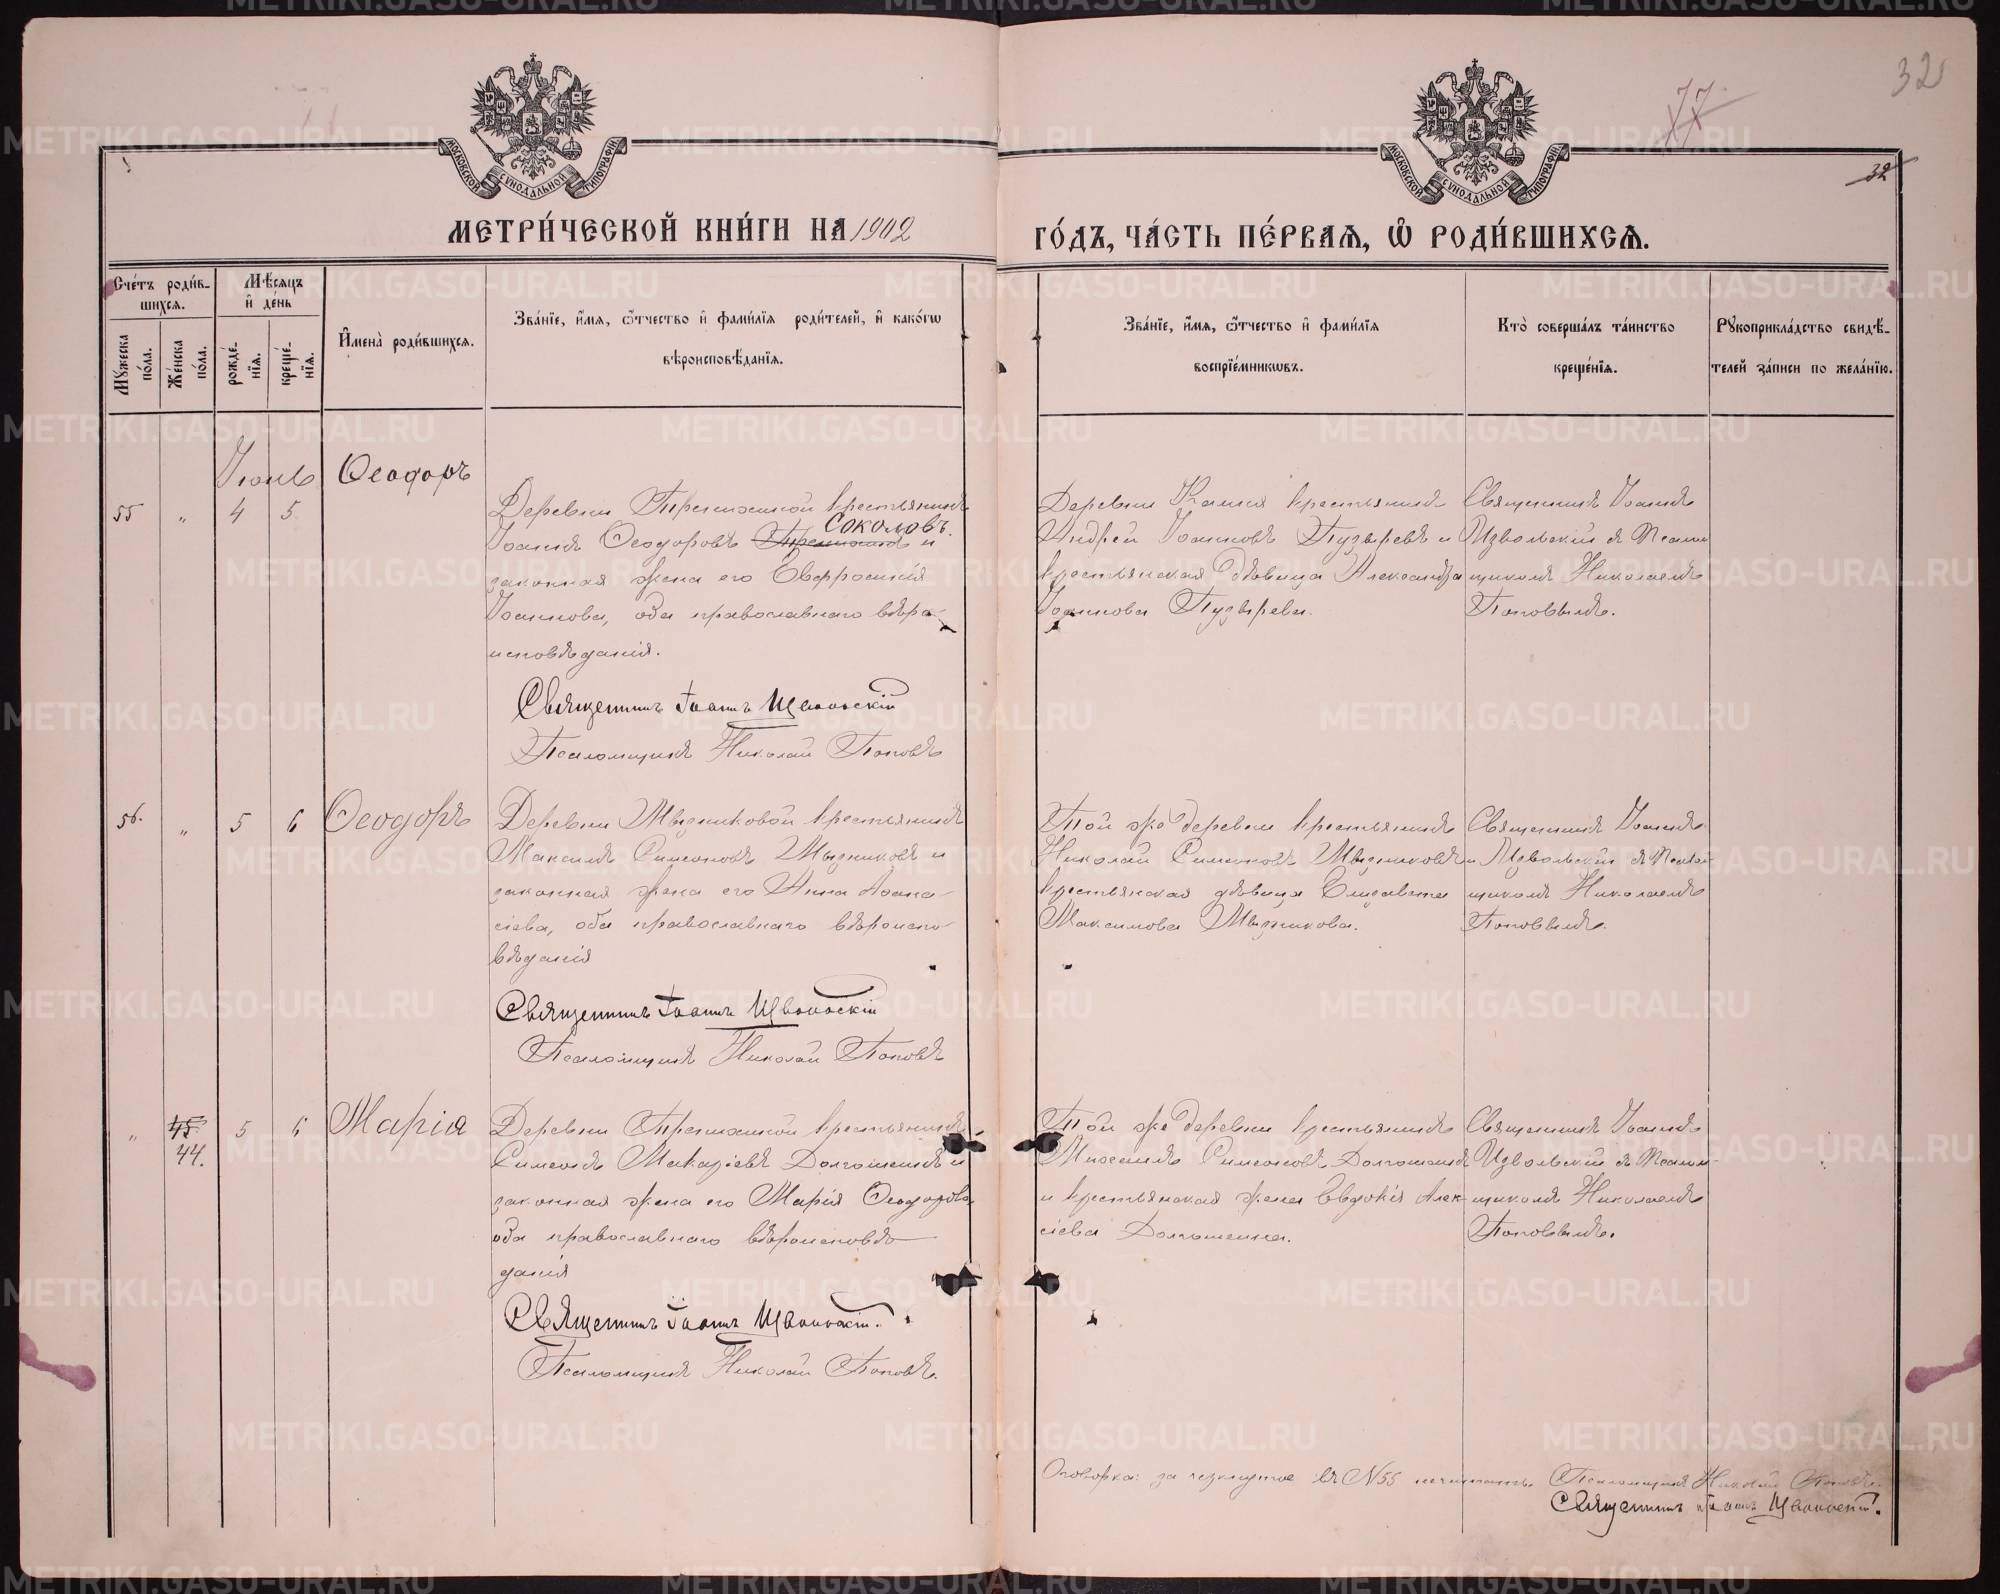 32
77
32
МОСКОВСКОЙ СѴНОДАЛЬНОЙ ТИПОГРАФІИ
МОСКОВСКОЙ СѴНОДАЛЬНОЙ ТИПОГРАФІИ
МЕТРИ́ЧЕСКОЙ КНИ́ГИ НА 1902
ГО́ДЪ, ЧА́СТЬ ПЕ́РВАѦ, Ѽ РОДИ́ВШИХСѦ.
Сче́тъ роди́в-
шихсѧ.
Мꙋжеска по́ла.
Же́нска по́ла.
Мѣ́сѧцъ
и҆ де́нь
рожде́-
нїѧ.
креще́-
нїѧ.
И҆мена̀ роди́вшихсѧ.
Зва́нїе, и҆́мѧ, ѻ҆́тчество и҆ фами́лїѧ роди́телей, и҆ како́гѡ
вѣроисповѣ́данїѧ.
Зва́нїе, и҆́мѧ, ѻ҆́тчество и҆ фами́лїѧ
воспрїе́мникѡвъ.
Кто̀ соверша́лъ та́инство
креще́нїѧ.
Рꙋкоприкла́дство свидѣ́-
телей за́писи по жела́нїю.
Іюнь
Ѳеодоръ
55 " 4 5
Деревни крестьянинъ
Соколовъ
Іоаннъ Ѳеодоровъ и
законная жена его Евфросинія
Іоаннова, оба православнаго вѣро-
исповѣданія.
Священникъ Іоаннъ Извольскій
Псаломщикъ Николай Поповъ
Деревни крестьянинъ
Андрей Іоанновъ Пузыревъ и
крестьянская дѣвица Александра
Іоаннова Пузырева.
Священникъ Іоаннъ
Извольскій съ Псалом-
щикомъ Николаемъ
Поповымъ.
56. " 5 6
Ѳеодоръ
Деревни Мызниковой крестьянинъ
Максимъ Симеоновъ Мызниковъ и
законная жена его Анна Аѳана-
сіева, оба православнаго вѣроиспо-
вѣданія
Священникъ Іоаннъ Извольскій
Псаломщикъ Николай Поповъ
Той же деревни крестьянинъ
Николай Симеоновъ Мызниковъ и
крестьянская дѣвица Елисавета
Максимова Мызникова.
Священникъ Іоаннъ
Извольскій съ Псалом-
щикомъ Николаемъ
Поповымъ.
" 45 5 6
44.
Марія
Деревни крестьянинъ
Симеонъ Макаріевъ Долгошеинъ и
законная жена его Марія Ѳеодорова,
оба православнаго вѣроисповѣ-
данія
Священникъ Іоаннъ Извольскій.
Псаломщикъ Николай Поповъ.
Той же деревни крестьянинъ
Михаилъ Симеоновъ Долгошеинъ
и крестьянская жена Евдокія Алек-
сіева Долгошеина.
Священникъ Іоаннъ
Извольскій съ Псалом-
щикомъ Николаемъ
Поповымъ.
Оговорка: зачеркнутое въ №55 не читать. Псаломщикъ Николай Поповъ.
Священникъ Іоаннъ Извольскій.
METRIKI.GASO-URAL.RU